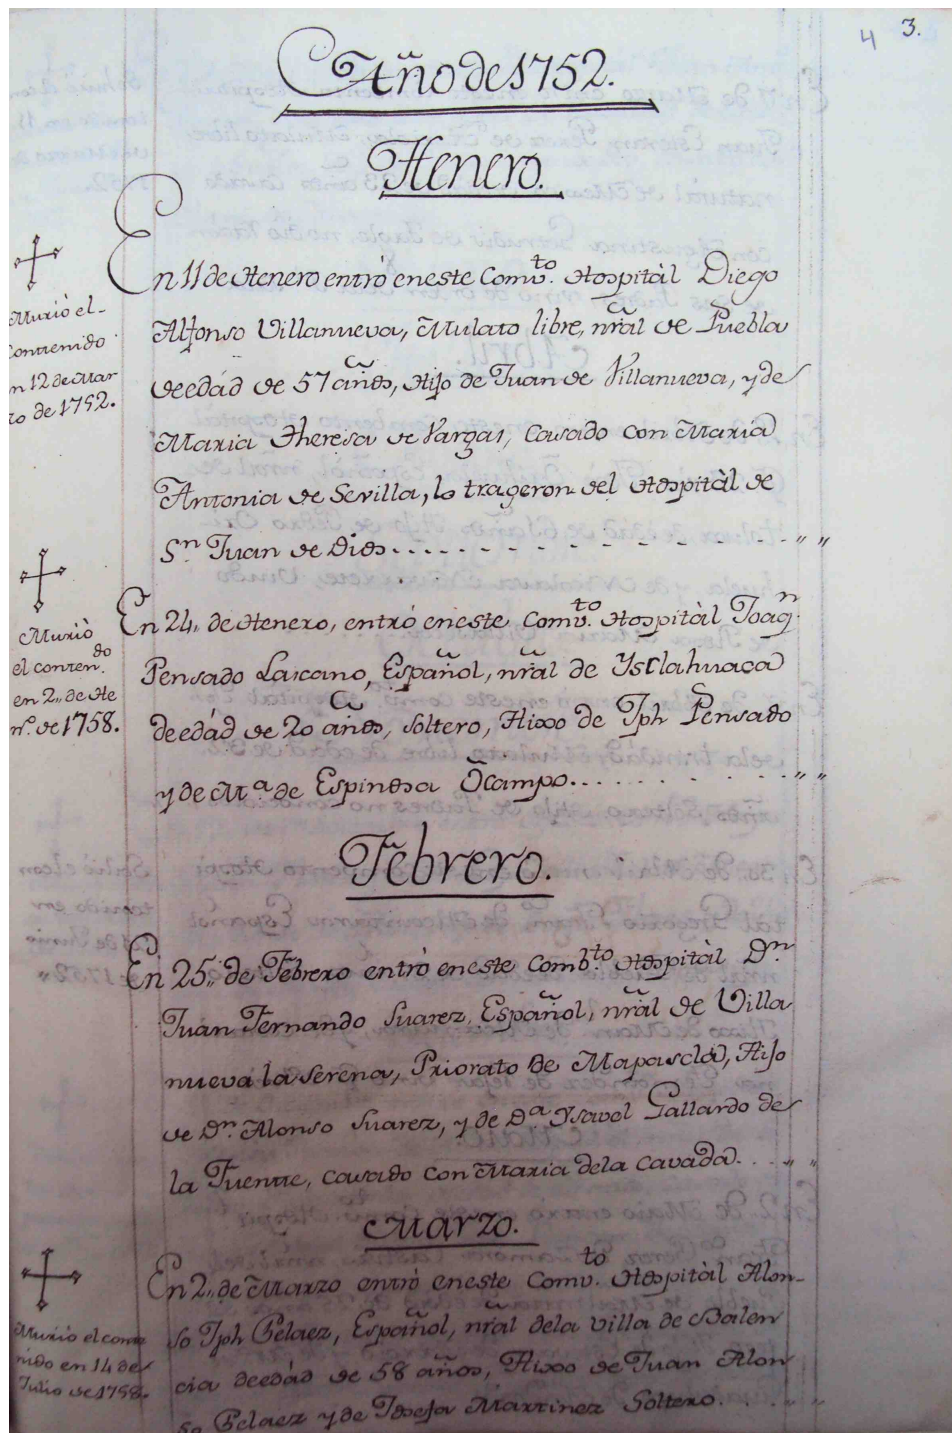 4 3.
Año de 1752.
Henero.
En 11 de Henero entrò eneste Comv.to Hospitàl Diego
Alfonso Villanueva, Mulato libre, nr̃al de Puebla
de edád de 57 años, Hijo de Juan de Villanueva, y de
Maria Theresa de Vargas, Casado con Maria
Antonia de Sevilla, lo trageron del Hospitàl de
Sn. Juan de Dios
Murió el
Contenido
en 12 de Mar
zo de 1752.
En 24,, de Henero, entrò eneste Comv.to Hospitàl Joaqn.
Pensado Lascano, Español, nr̃al de Ystlahuaca
de edád de 20 años, Soltero, Hixo de Jph Pensado
y de Ma. de Espinosa Ocampo.
Murió
el conten.do
en 2,, de He
nro. de 1758.
Febrero.
En 25,, de Febrero entrò eneste Comb.to Hospitàl Dn.
Juan Fernando Suarez, Español, nr̃al de Villa
nueva la Serena, Priorato de Mapascla, Hijo
de Dn. Alonso Suarez, y de Da. Ysavel Gallardo de
la Fuente, casado con Maria dela Cavada.
Marzo.
En 2,, de Marzo entrò eneste Comv.to Hospitàl Alon-
so Jph Pelaez, Español, nr̃al dela Villa de Balen
cia de edád de 58 años, Hixo de Juan Alon
so Pelaez y de Josefa Martinez Soltero.
Murió el conte
nido en 14 de
Julio de 1758.